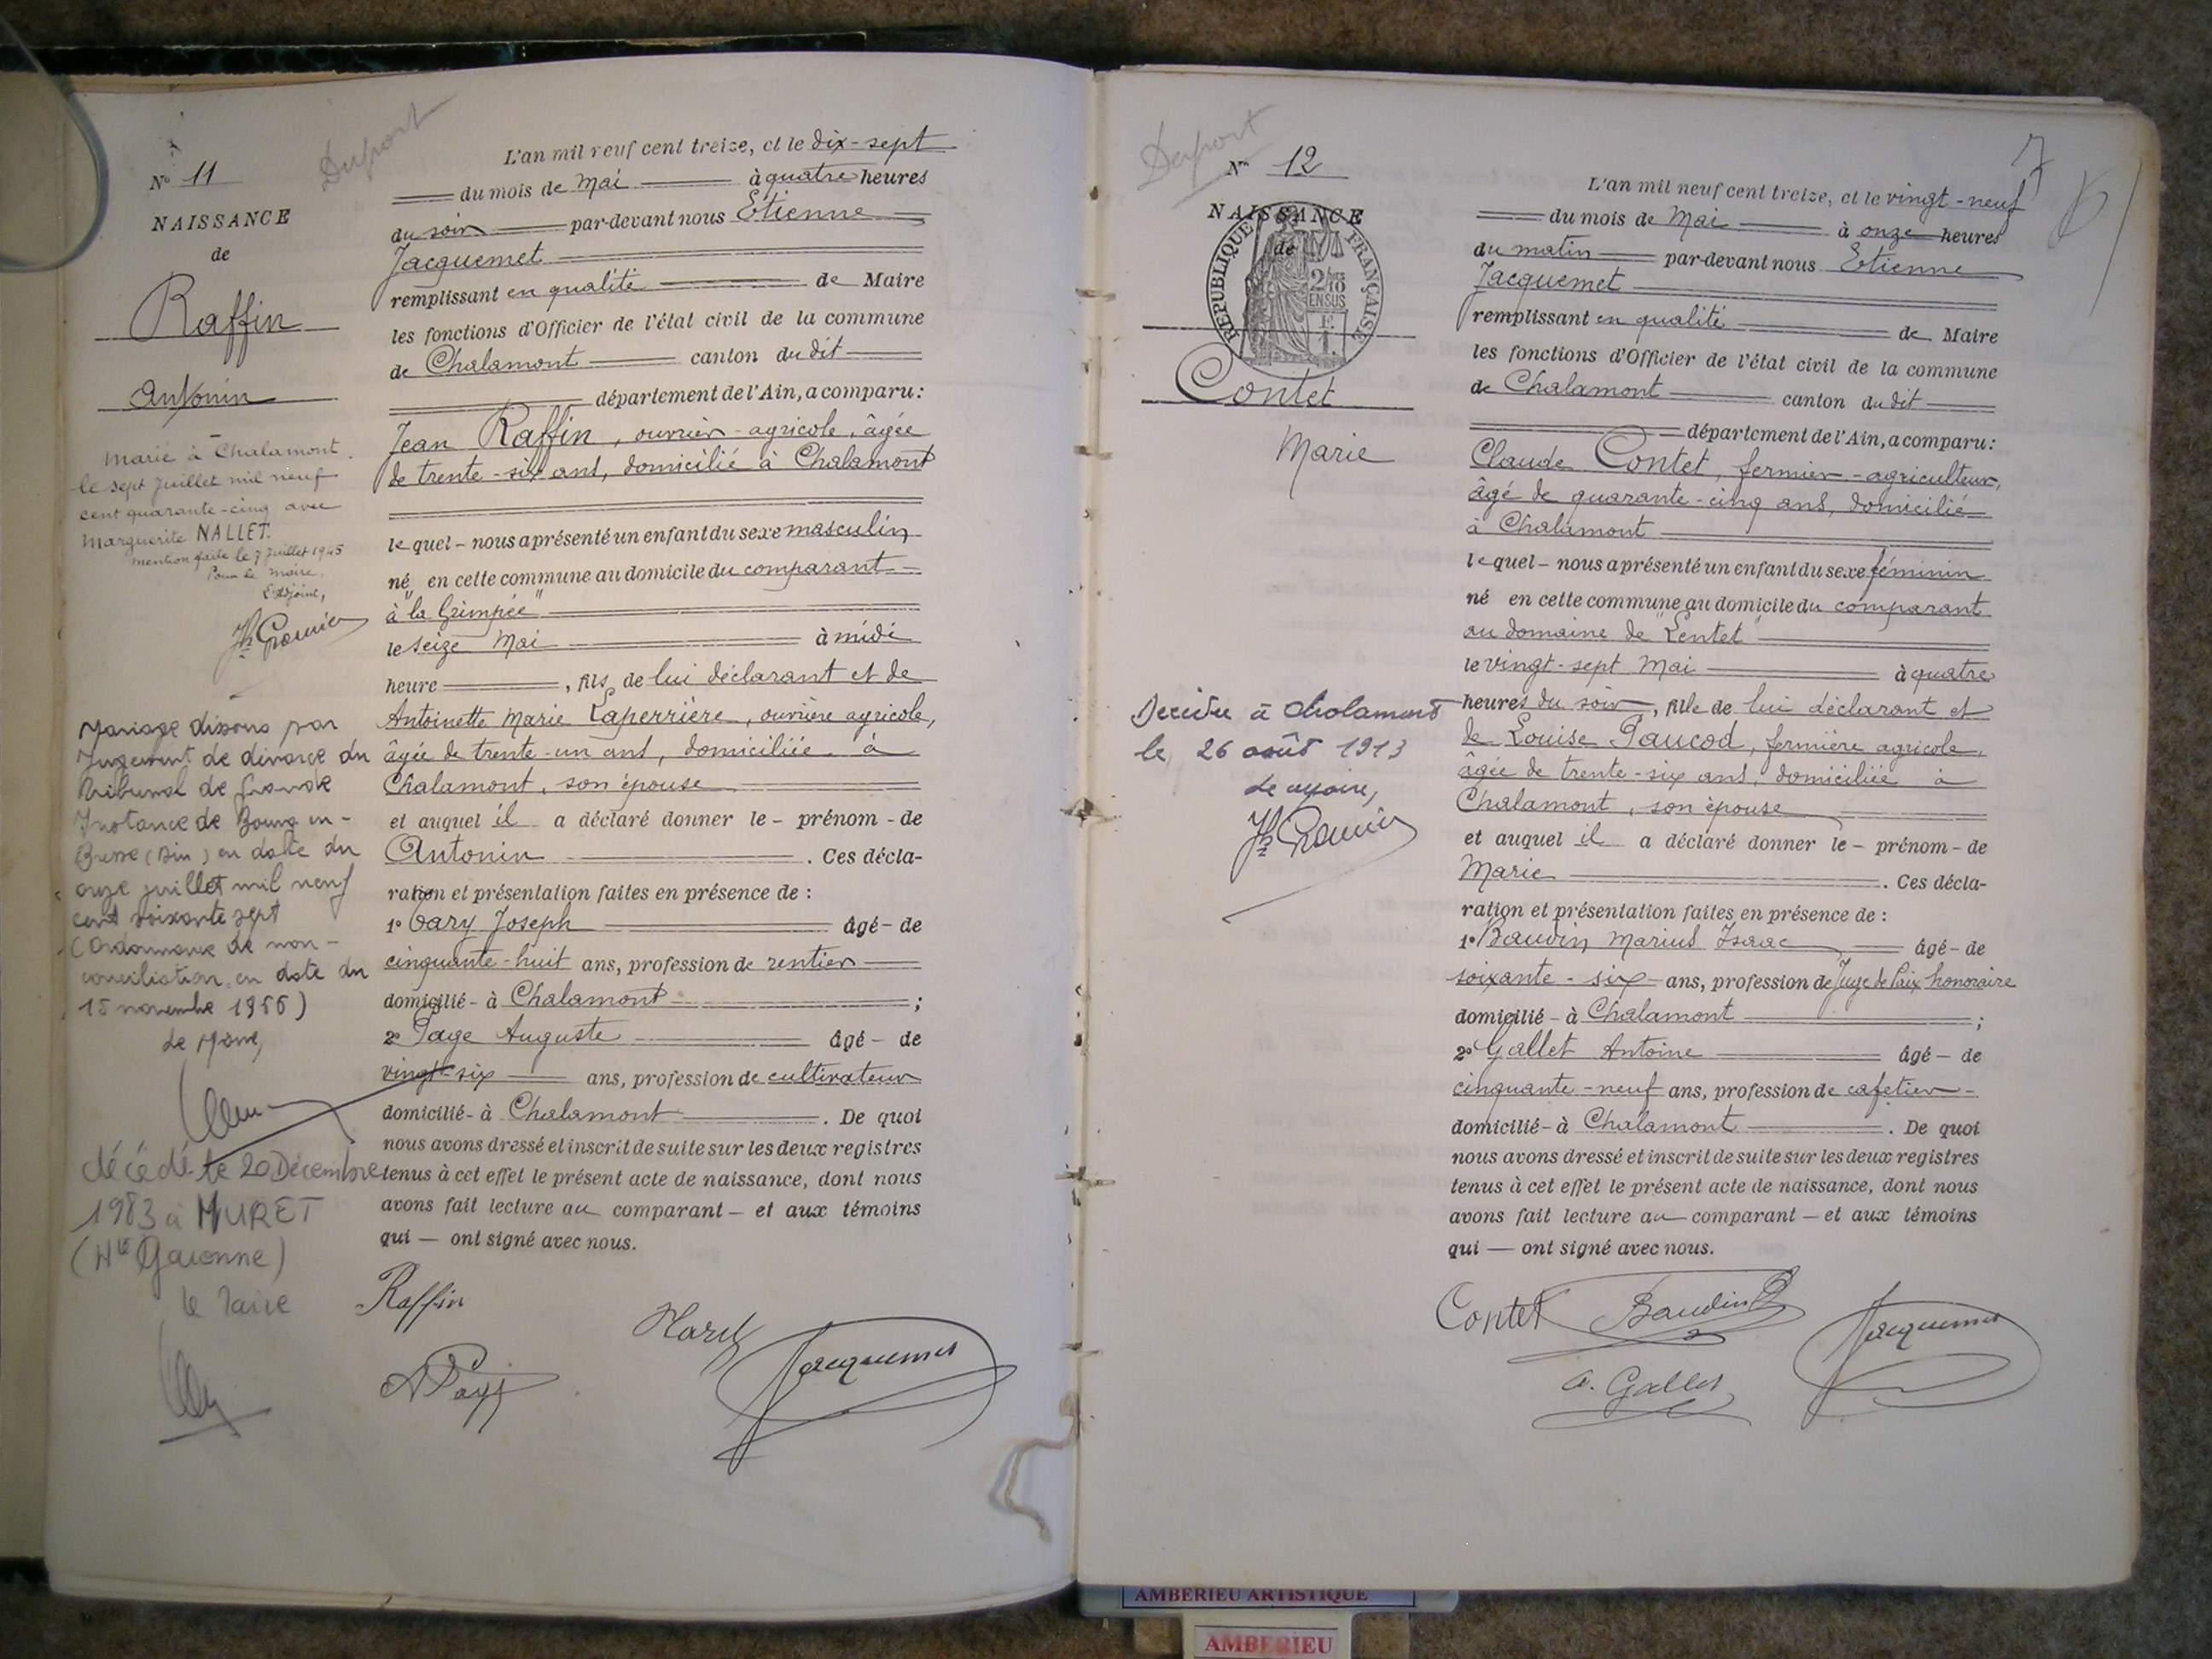 Duport
N° 11
NAISSANCE
de
Raffin
Antonin
Marié à Chalamont
le sept Juillet mil neuf
cent quarante-cinq avec
Marguerite NALLET.
mention faite le 7 Juillet 1945
Pour le Maire,
L'Adjoint,
Mariage dissous par
Jugement de divorce du
Tribunal de Grande
Instance de Bourg en-
Bresse (Ain) en date du
onze juillet mil neuf
cent soixante sept
(Ordonnance de non-
conciliation en date du
15 novembre 1966)
Le Maire,
décédé le 20 Décembre
1983 à MURET
(Hte Garonne)
le Maire
L'an mil neuf cent treize, et le dix-sept
du mois de Mai à quatre heures
du soir par-devant nous Etienne
Jacquemet
remplissant en qualité de Maire
les fonctions d'Officier de l'état civil de la commune
de Chalamont canton du dit
département de l'Ain, a comparu :
Jean Raffin, ouvrier-agricole, âgée
de trente-six ans, domicilié à Chalamont
le quel - nous a présenté un enfant du sexe masculin
né en cette commune au domicile du comparant
à "la Grimpée"
le seize Mai à midi
heure , fils de lui déclarant et de
Antoinette Marie Laperrière, ouvrière agricole,
âgée de trente-un ans, domiciliée à
Chalamont, son épouse
et auquel il a déclaré donner le - prénom - de
Antonin . Ces décla-
ration et présentation faites en présence de :
1° Gary Joseph âgé - de
cinquante-huit ans, profession de rentier
domicilié - à Chalamont ;
2° Page Auguste âgé - de
vingt-six ans, profession de cultivateur
domicilié - à Chalamont . De quoi
nous avons dressé et inscrit de suite sur les deux registres
tenus à cet effet le présent acte de naissance, dont nous
avons fait lecture au comparant - et aux témoins
qui - ont signé avec nous.
Raffin
A Page
Jacquemet
Duport
N° 12
NAISSANCE
de
REPUBLIQUE FRANÇAISE
2/10
EN SUS
Contet
Marie
Décédée à Chalamont
le 26 août 1913
Le Maire,
7
L'an mil neuf cent treize, et le vingt-neuf
du mois de Mai à onze heures
du matin par-devant nous Etienne
Jacquemet
remplissant en qualité de Maire
les fonctions d'Officier de l'état civil de la commune
de Chalamont canton du dit
département de l'Ain, a comparu :
Claude Contet, fermier-agriculteur,
âgé de quarante-cinq ans, domicilié
à Chalamont
le quel - nous a présenté un enfant du sexe féminin
né en cette commune au domicile du comparant
au domaine de "Lentet"
le vingt-sept Mai à quatre
heures du soir, fille de lui déclarant et
de Louise Paucod, fermière agricole,
âgée de trente-six ans, domiciliée à
Chalamont, son épouse
et auquel il a déclaré donner le - prénom - de
Marie . Ces décla-
ration et présentation faites en présence de :
1° Baudin Marius Isaac âgé - de
soixante-six ans, profession de Juge de Paix honoraire
domicilié - à Chalamont ;
2° Gallet Antoine âgé - de
cinquante-neuf ans, profession de cafetier -
domicilié - à Chalamont . De quoi
nous avons dressé et inscrit de suite sur les deux registres
tenus à cet effet le présent acte de naissance, dont nous
avons fait lecture au comparant - et aux témoins
qui - ont signé avec nous.
Contet
Baudin
Jacquemet
A. Gallet
AMBERIEU ARTISTIQUE
AMBERIEU